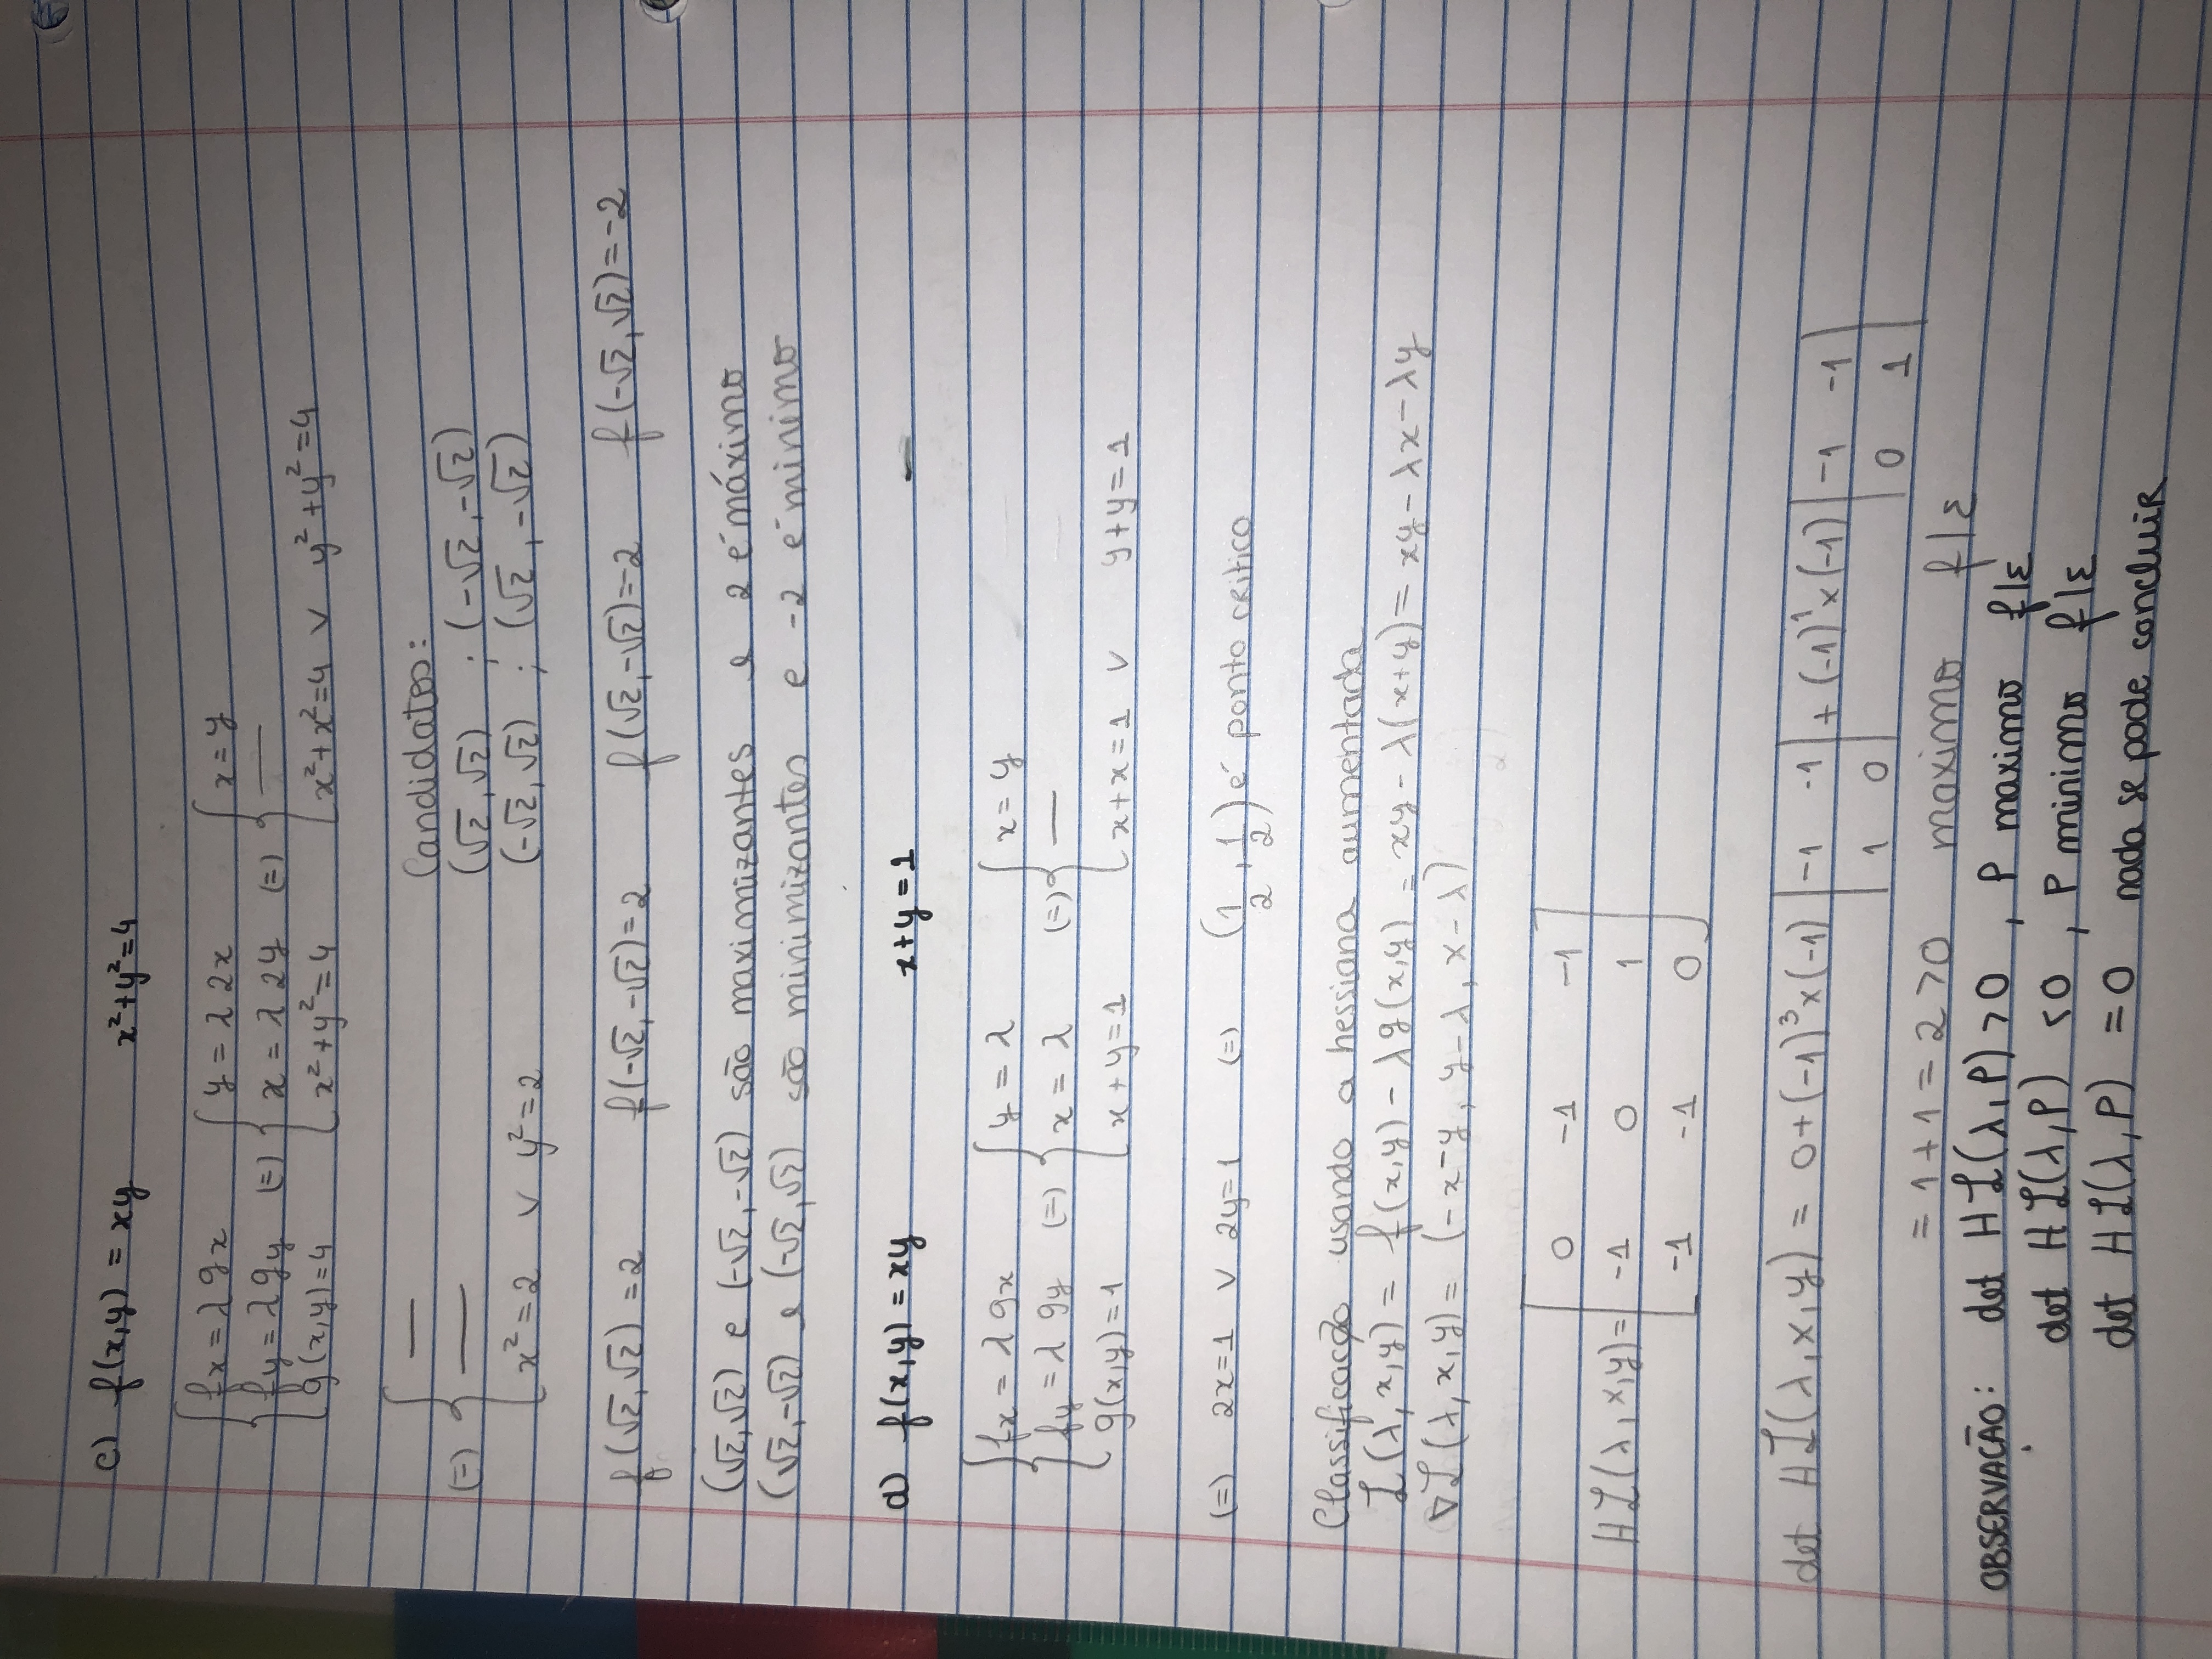 c) f(x,y) = xy x²+y²=4
{ fx = λ gx { y = λ 2x { x = y
fy = λ gy (=) x = λ 2y (=) —
g(x,y)=4 x²+y²=4 x²+x²=4 ∨ y²+y²=4
{ — Candidatos:
(=) — (√2,√2) ; (-√2,-√2)
x²=2 ∨ y²=2 (-√2,√2) ; (√2,-√2)
f(√2,√2) = 2 f(-√2,-√2) = 2 f(√2,-√2)=-2 f(-√2,√2)=-2
(√2,√2) e (-√2,-√2) são maximizantes e 2 é máximo
(√2,-√2) e (-√2,√2) são minimizantes e -2 é minimo
d) f(x,y) = xy x+y=1
{ fx = λ gx { y = λ { x = y
fy = λ gy (=) x = λ (=) —
g(x,y)=1 x+y=1 x+x=1 ∨ y+y=1
(=) 2x=1 ∨ 2y=1 (=) (1/2, 1/2) é ponto critico
Classificação usando a hessiana aumentada
L(λ,x,y) = f(x,y) - λg(x,y) = xy - λ(x+y) = xy - λx - λy
∇L(λ,x,y) = (-x-y, y-λ, x-λ)
0 -1 -1
HL(λ,x,y)= -1 0 1
-1 -1 0
det HL(λ,x,y) = 0+(-1)³×(-1) |-1 -1| + (-1)¹×(-1) |-1 -1|
1 0 0 1
= 1+1 = 2 >0 maximo f|Σ
OBSERVAÇÃO: det HL(λ,P) >0 , P maximo f|Σ
det HL(λ,P) <0 , P minimo f|Σ
det HL(λ,P) = 0 nada se pode concluir